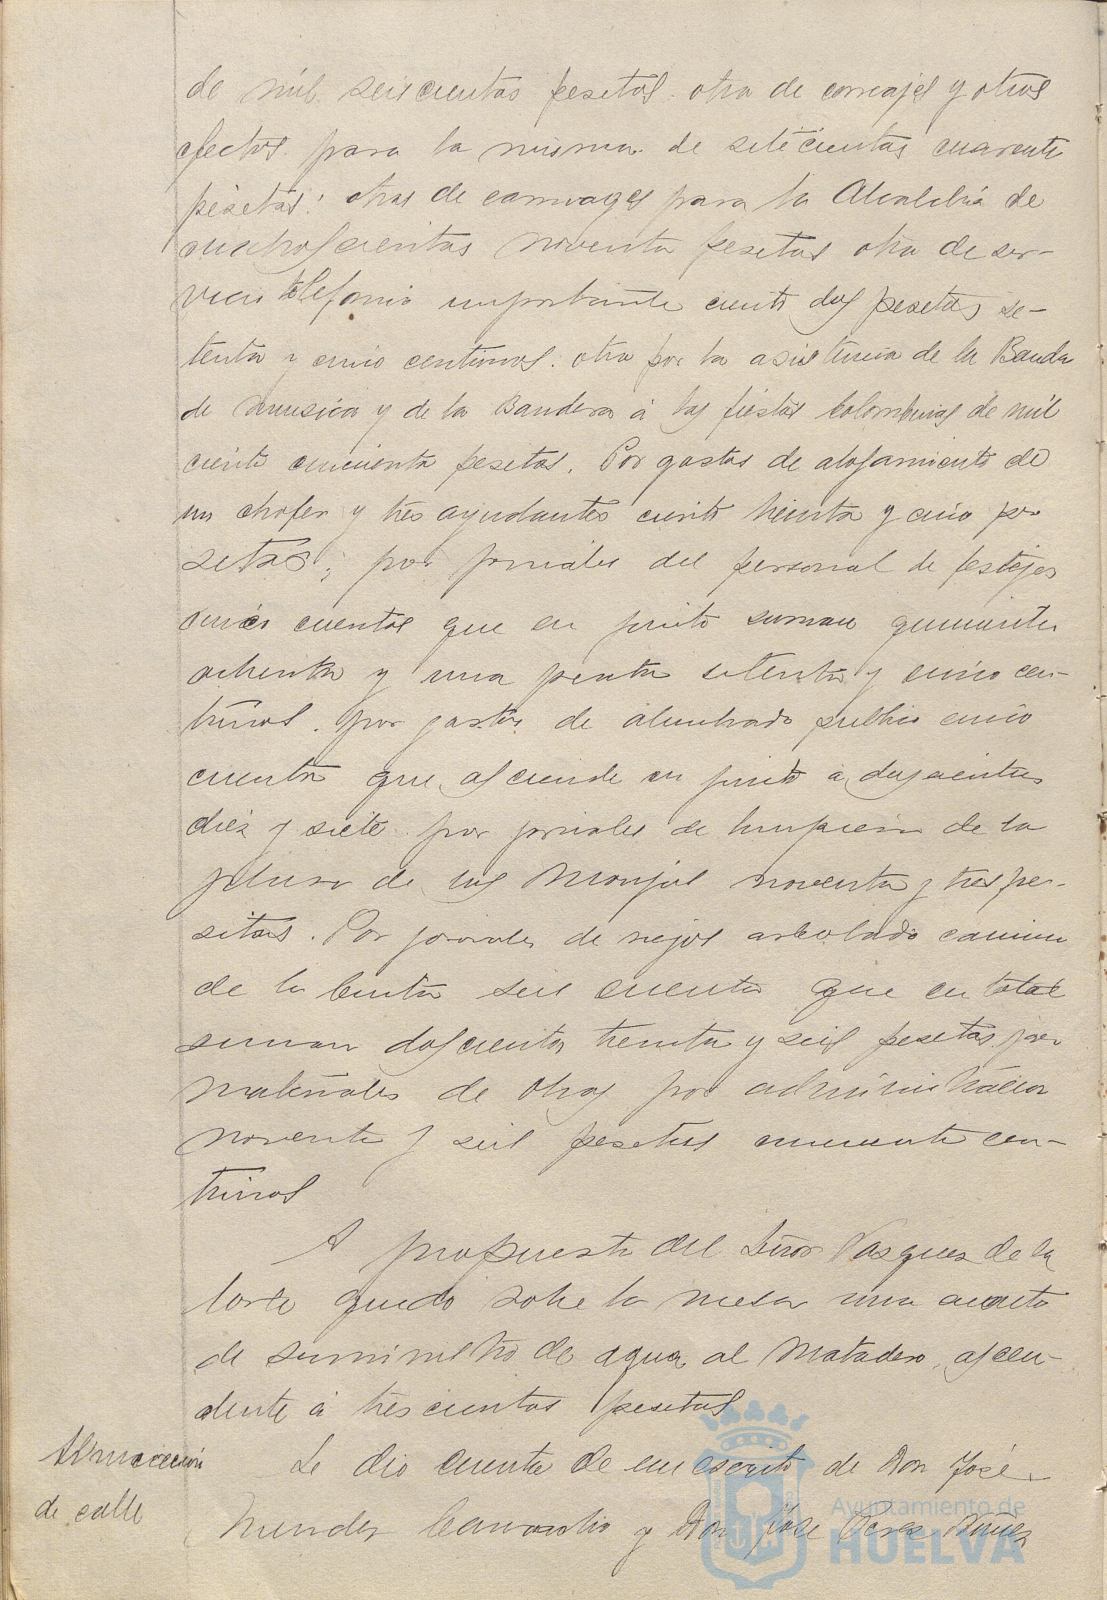 de mil seiscientas pesetas. otra de correajes y otros
efectos para la misma de setecientas cuarenta
pesetas: otras de carruages para la Alcaldia de
cuatroscientas noventa pesetas otra de ser-
vicio telefonia importante ciento dos pesetas se-
tenta y cinco centimos. otra por la asistencia de la Banda
de musica y de la Bandera á las fiestas Colombinas de mil
ciento cincuenta pesetas. Por gastos de alojamiento de
un chofer y tres ayudantes ciento treinta y cinco pe
setas; por jornales del personal de festejos
cuentas que en junto suman quinientas
ochenta y una peseta setenta y cinco cen-
timos. por gastos de alumbrado publico cinco
cuentas que asciende en junto a doscientas
diez y siete por jornales de limpieza de la
plaza de las Monjas noventa y tres pe-
setas. Por jornales de riegos arbolado camino
de la Cinta seis cuentas que en total
suman doscientas treinta y seis pesetas, por
materiales de obras por administracion
noventa y seis pesetas cincuenta cen-
timos
A propuesta del Señor Vasquez de la
Corte quedó sobre la mesa una cuenta
de suministro de agua al Matadero, ascen-
dente á trescientas pesetas
Alineacion
de calle
Se dio cuenta de un escrito de Don José
Mendez y Don José Perez
Ayuntamiento de
HUELVA